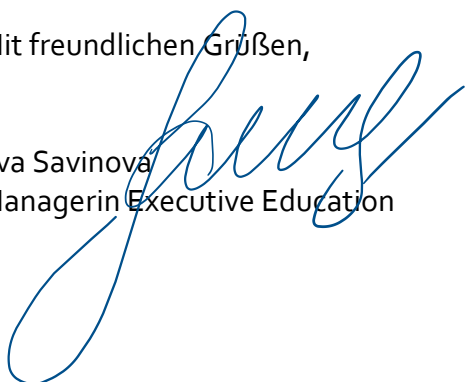 it freundlichen Grüßen,
va Savinova
anagerin Executive Education